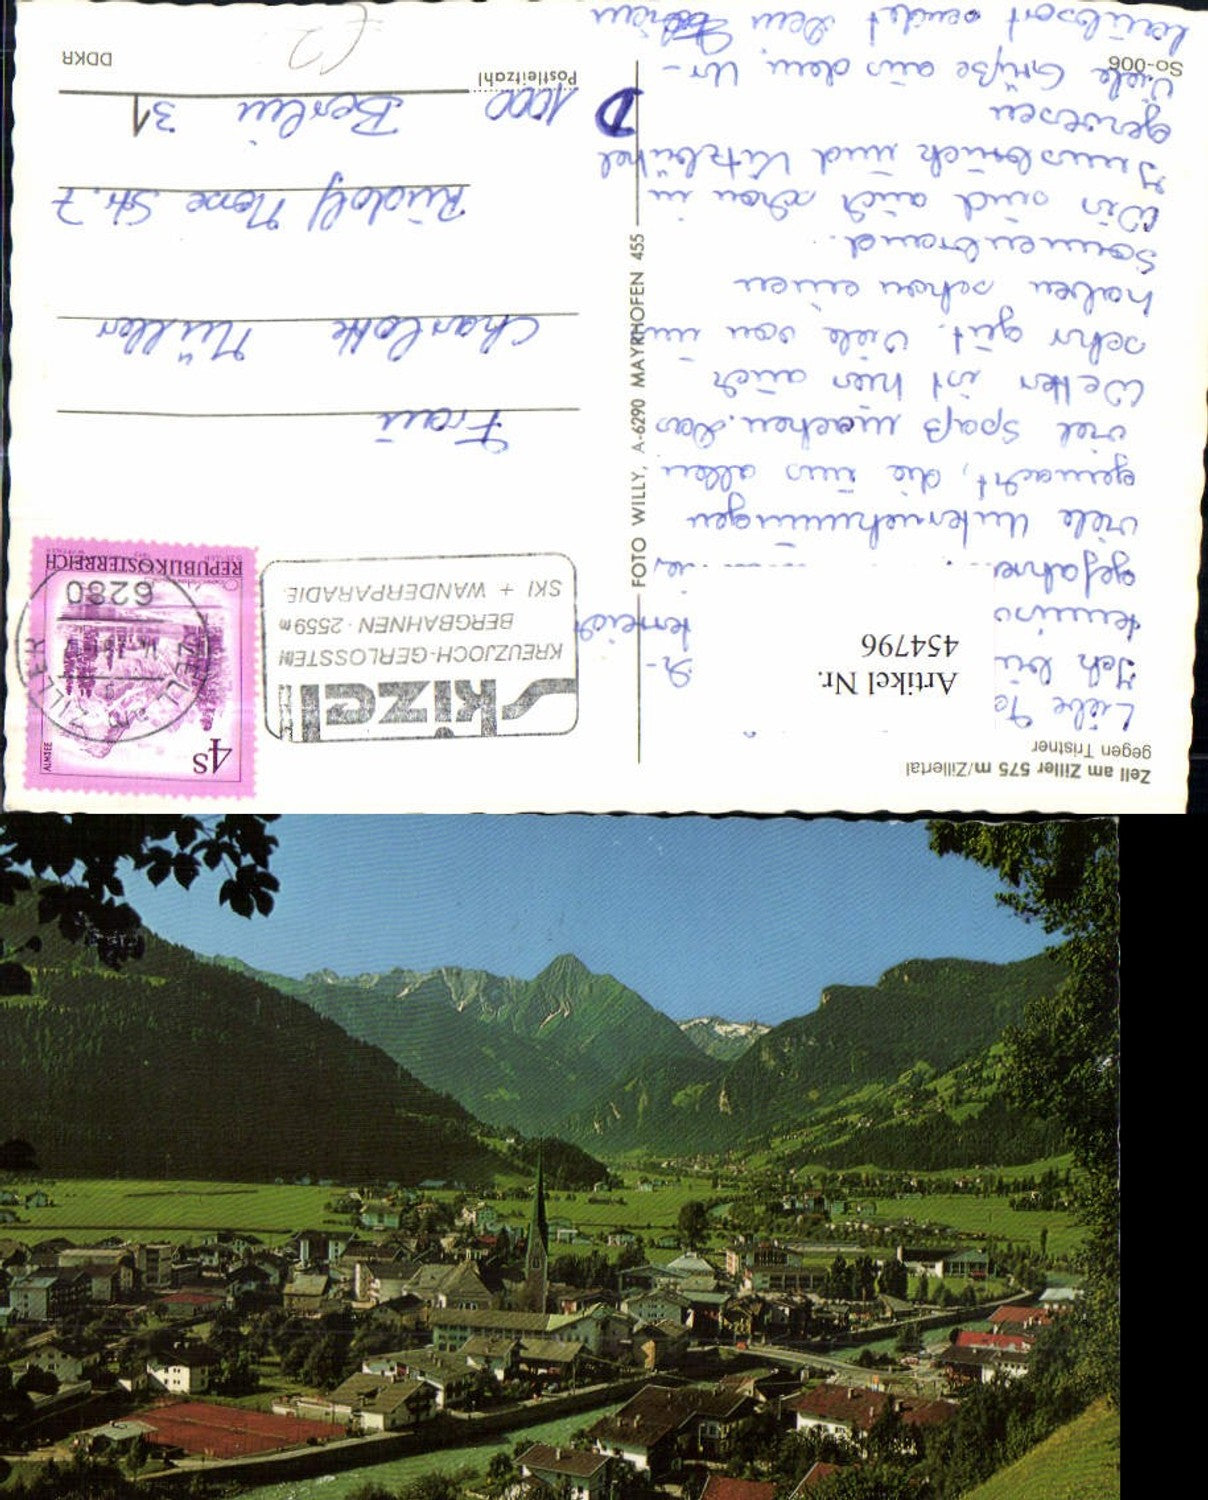 Zell am Ziller 575 m/Zillertal
gegen Tristner
Liebe
Ich bin
tennis
gefahren
viele Unternehmungen
gemacht, die uns allen
viel Spaß machen. Das
Wetter ist hier auch
sehr gut. Viele von uns
haben schon einen
Sonnenbrand.
Wir sind auch schon in
Innsbruck und Kitzbühel
gewesen
Viele Grüße aus dem Ur-
laubsort sendet dein
So-006
Artikel Nr.
454796
FOTO WILLY, A-6290 MAYRHOFEN 455
skizel
KREUZJOCH-GERLOSSTEIN
BERGBAHNEN · 2559m
SKI + WANDERPARADIE
4S
ALMSEE
REPUBLIK ÖSTERREICH
ZELL AM ZILLER
6280
Frau
Charlotte Müller
Rudolf Mosse Str. 7
D
1000 Berlin 31
Postleitzahl
DDKR